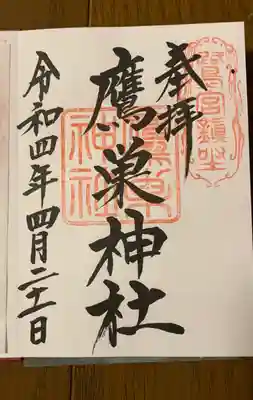 奉拝
鷹巣神社
鷹巣
神社
令和四年四月二十一日